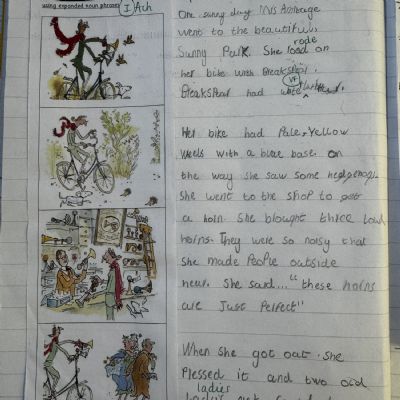 using expanded noun phrases
I Ach
One sunny day Mrs Armitage
went to the beautiful
Sunny Park. She rode on
her bike with Breakspear.
Breakspear had white
VF
Her bike had Pale, Yellow
Weels with a blue base. on
the way she saw some
She went to the shop to
a horn. She blought three loud
horns. They were so noisy that
she made People outside
hear. She said..." these horns
are Just Perfect"
When she got out she
Plessed it and two old
ladies